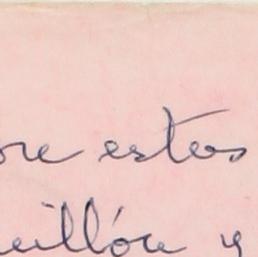 ore estos
uillón y